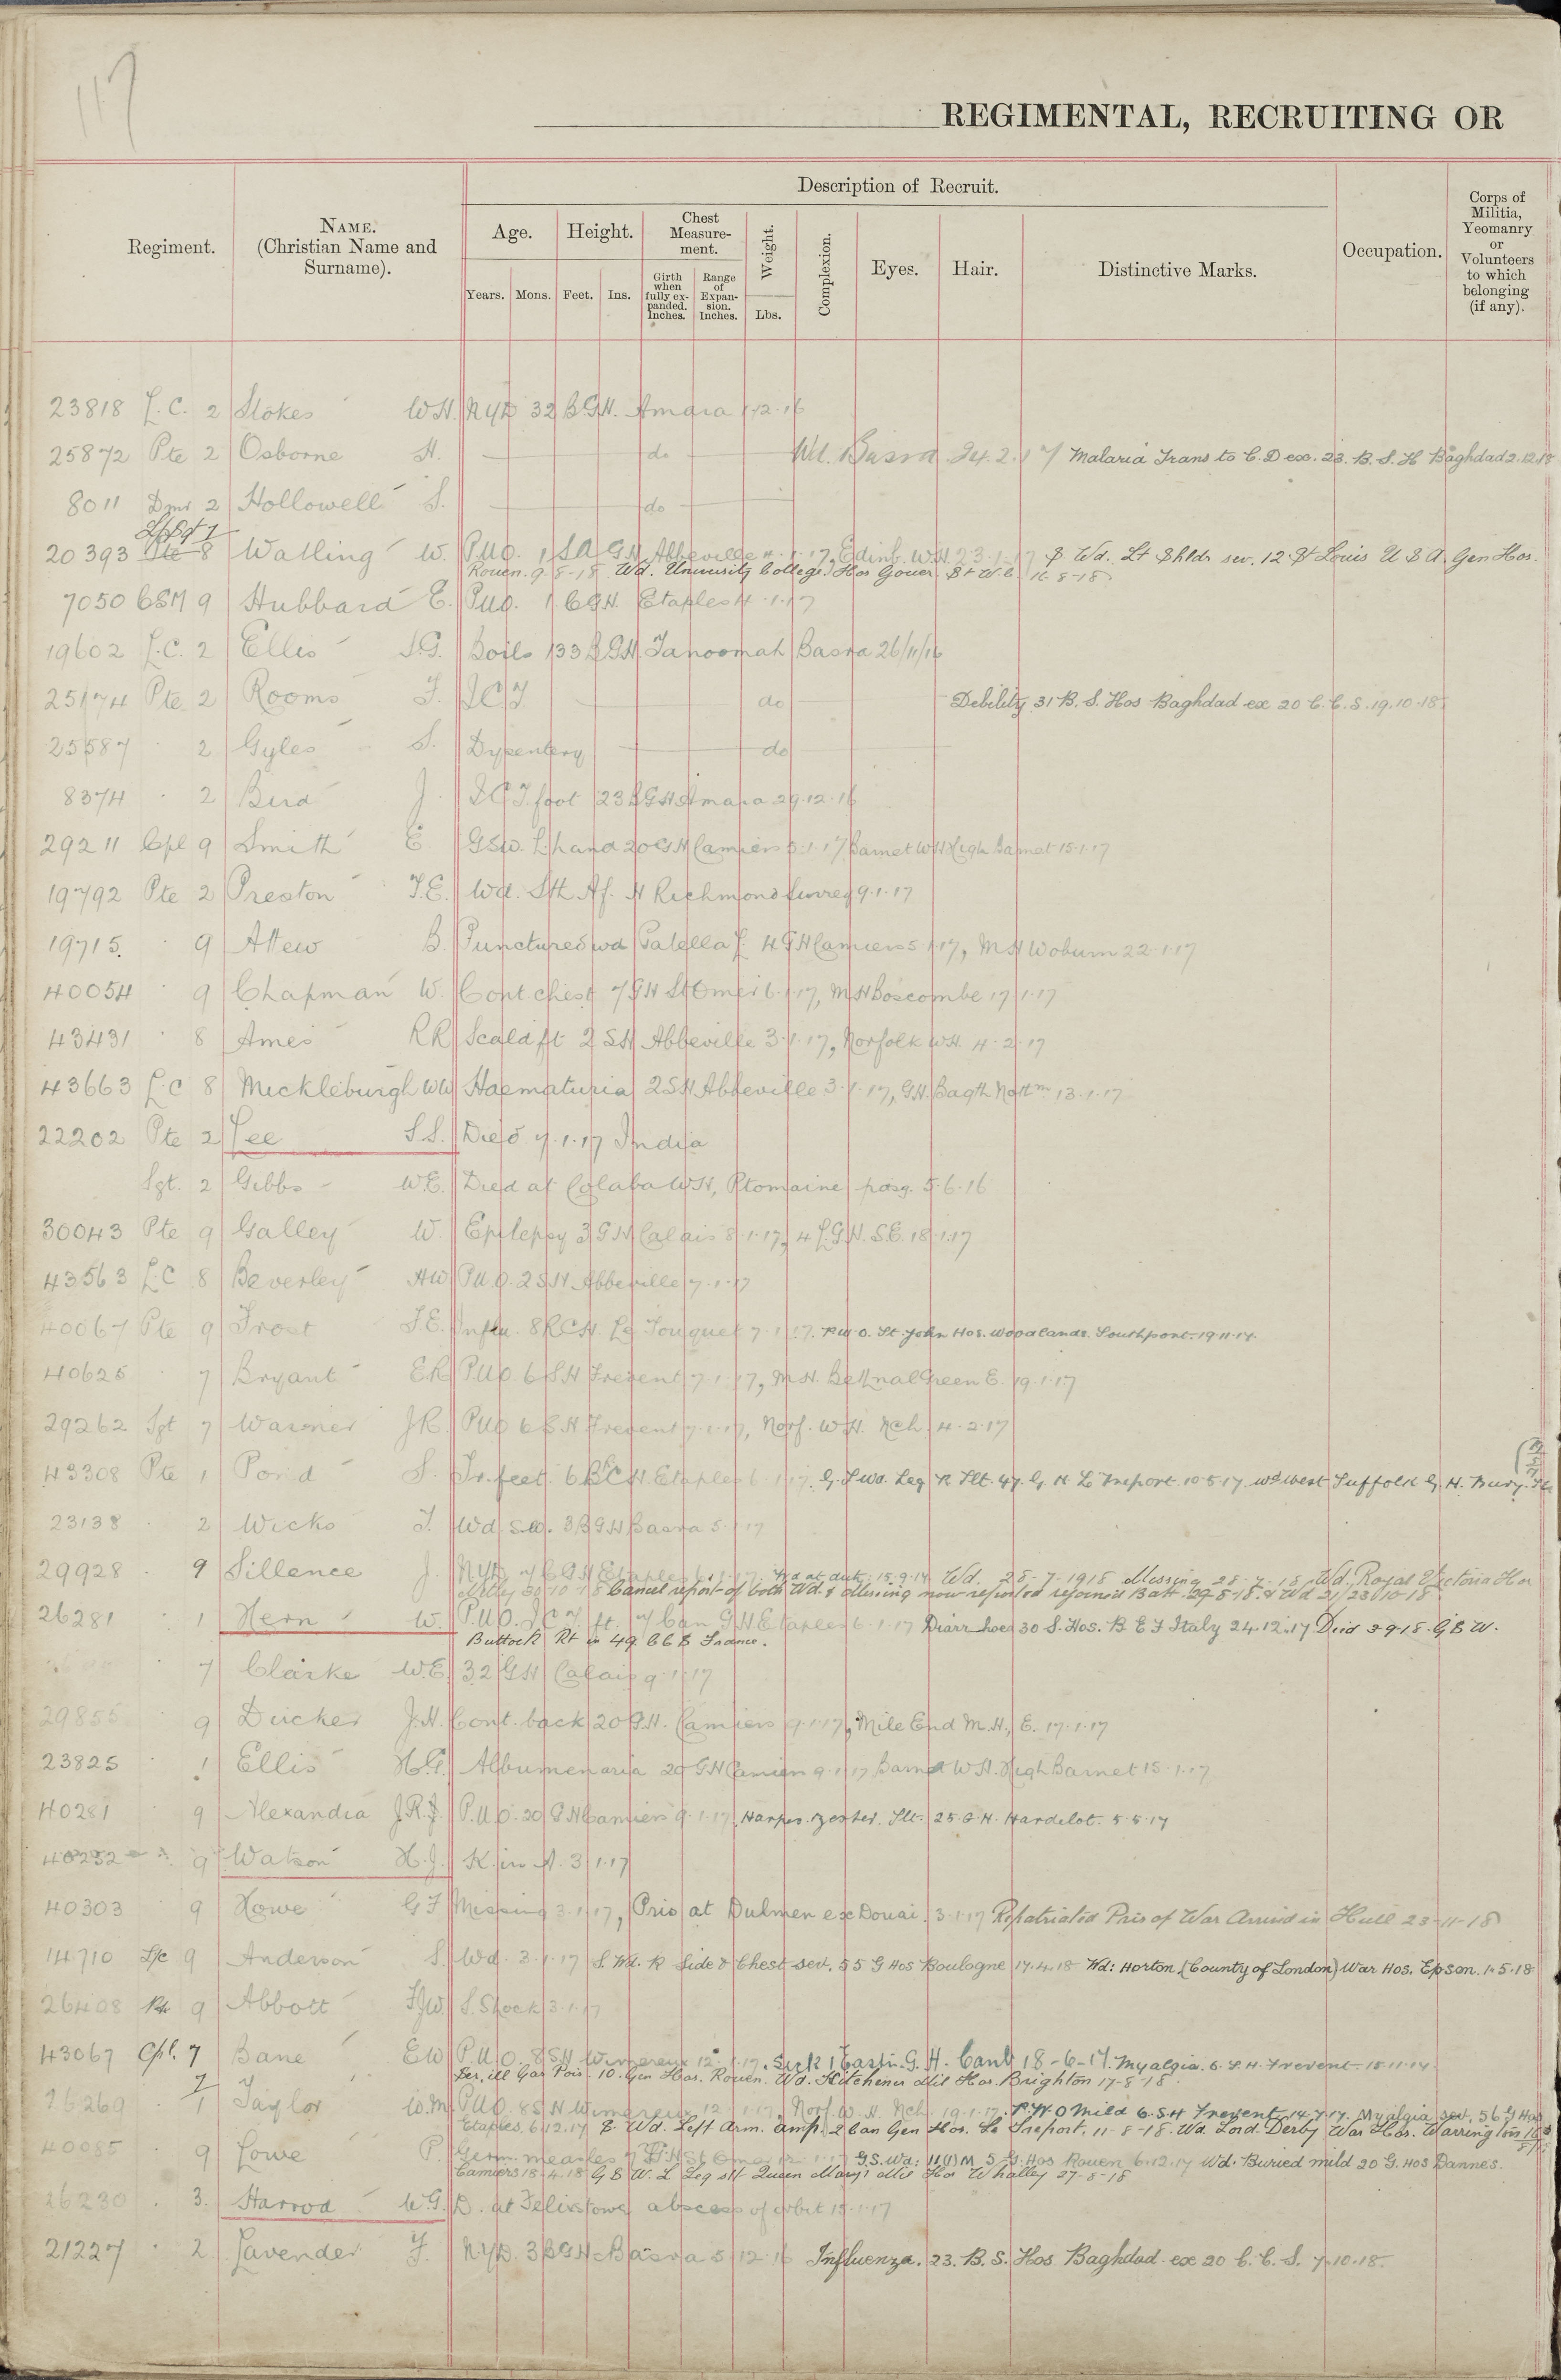 117
REGIMENTAL, RECRUITING OR
Regiment.
NAME.
(Christian Name and
Surname).
Description of Recruit.
Age.
Height.
Chest
Measure-
ment.
Weight.
Complexion.
Eyes.
Hair.
Distinctive Marks.
Occupation.
Corps of
Militia,
Yeomanry
or
Volunteers
to which
belonging
(if any).
Years. Mons. Feet. Ins.
Girth
when
fully ex-
panded.
Inches.
Range
of
Expan-
sion.
Inches.
Lbs.
23818 L.C. 2 Stokes W.H. NYD 32 B.G.H. Amara 1-12-16
25872 Pte 2 Osborne H. do Wd. Basra 24.2.17 Malaria Trans to C.D ex. 23. B. S. H Baghdad 2.12.18
8011 Dmr 2 Hollowell S. do
L/Sgt 7
20393 Pte 8 Watling W. P.U.O. 1 S.A.G.H. Abbeville 4.1.17, Edinb. W.H 23.1.17 & Wd. Lt Shldr sev. 12 St Louis U S A. Gen Hos.
Rouen. 9-8-18 Wd. University College Hos Gower St W.C. 16-8-18
7050 CSM 9 Hubbard E. P.U.O. 1 C.G.H. Etaples 4.1.17
19602 L.C. 2 Ellis S.G. Boils 133 B.G.H. Tanoomah Basra 26/11/16
25174 Pte 2 Rooms F. I.C.T. do Debility 31 B. S. Hos Baghdad ex 20 C. C. S. 19.10.18
25587 2 Gyles S. Dysentery do
8374 2 Bird J. I.C.T. foot 23 B.G.H Amara 29.12.16
29211 Cpl 9 Smith E GSW. L. hand 20 G.H Camiers 5.1.17 Barnet W.H High Barnet 15.1.17
19792 Pte 2 Preston T.E. Wd. Sth Af. H Richmond Surrey 9.1.17
19715. 9 Attew B. Punctured wd Patella L. 4 G.H Camiers 5.1.17, M.H Woburn 22.1.17
40054 9 Chapman W. Cont chest 7 G.H St Omer 6.1.17, M.H Boscombe 17.1.17
43431 8 Ames RR Scald ft 2 S.H Abbeville 3.1.17, Norfolk W.H. 4.2.17
43663 L.C 8 Meckleburgh WW Haematuria 2 S.H Abbeville 3.1.17, G.H. Bagth Nottm 13.1.17
22202 Pte 2 Lee S.S. Died 7.1.17 India
Sgt. 2 Gibbs W.E. Died at Colaba W.H, Ptomaine posg. 5.6.16
30043 Pte 9 Galley W. Epilepsy 3 G.H Calais 8.1.17, 4 L.G.H. S.E. 18.1.17
43563 L.C 8 Beverley HW P.U.O. 2 S.H. Abbeville 7.1.17
40067 Pte 9 Frost F E. Influ. 8 R.C.H. Le Touquet 7.1.17. P.U.O. St. John Hos. Woodlands. Southport. 19.11.17.
40625 7 Bryant E.R P.U.O. 6 S.H Frevent 7.1.17, M.H. Bethnal Green E. 19.1.17
29262 Sgt 7 Warner J.R. P.U.O 6 S.H Frevent 7.1.17, Norf. W.H. Nch. 4.2.17
43308 Pte 1 Pond S. Tr. feet 6 B.R.C.H. Etaples 6.1.17. G.S wd. Leg R Slt. 47. G. H. Le Treport 10.5.17. Wd West Suffolk G. H. Bury.
23138 2 Wicks J. Wd. S.W. 3 B.G.H Basra 5.1.17
29928 9 Sillence J. NYD. 7 C.G.H Etaples 6.1.17. Wd at duty 15.9.17 Wd. 28-7-1918 Missing 28-7-18 Wd. Royal Victoria Hos
Netley 30-10-18 Cancel report of both Wd. & Missing now reported rejoined Batt 29-8-18. & Wd 21/23/10/18
26281 1 Hern W. P.U.O. I.C.T. ft. 7 Can G.H Etaples 6.1.17 Diarrhoea 30 S. Hos. B E F Italy 24.12.17 Died 3-9-18. G S W.
Buttock Rt in 49 C C S France.
7 Clarke W.E. 32 G.H Calais 9.1.17
29855 9 Ducker J.H. Cont. back 20 G.H. Camiers 9.1.17, Mile End M.H., E. 17.1.17
23825 1 Ellis H.G. Albumenaria 20 G.H Camiers 9.1.17 Barnet W.H. High Barnet 15.1.17
40281 9 Alexandra J.R.J. P.U.O. 20 G.H Camiers 9.1.17, Harpes. Zoster. Slt. 25 G.H. Hardelot. 5.5.17
40252 9 Watson H.J. K. in A. 3.1.17
40303 9 Howe G F Missing 3.1.17, Pris at Dulmen ex Douai. 3.1.17 Repatriated Pris of War Arrived in Hull 23-11-18
14710 L/c 9 Anderson S. Wd. 3.1.17 S. Wd. R Side & Chest sev. 55 G Hos Boulogne 17.4.18 Wd: Horton (County of London) War Hos. Epsom. 1.5.18
26408 Pte 9 Abbott F.J.W. S. Shock 3.1.17
43067 Cpl. 7 Bane E W P.U.O. 8 S.H Wimereux 12.1.17. Sick 1 Eastn. G. H. Camb 18-6-17. Myalgia. 6. S. H. Frevent 15.11.17
Ser. ill Gas Pois. 10. Gen Hos. Rouen. Wd. Kitchener Mil Hos. Brighton 17-8-18.
26269 7 Taylor W.M. P.U.O. 8 S.H Wimereux 12.1.17, Norf. W. H. Nch. 19.1.17. P.U.O Mild 6. S.H Frevent 14.7.17. Myalgia sev. 56 G Hos
Etaples. 6.12.17 & Wd. Left Arm. amp. 2 Can Gen Hos. Le Treport. 11-8-18. Wd. Lord Derby War Hos. Warrington
40085 9 Lowe P. Germ. measles 7 G.H St Omer 12.1.17 G.S. Wd: 11(1) M 5. G. Hos Rouen 6.12.17 Wd. Buried mild 20 G. Hos Dannes.
Camiers 18.4.18 G S W. L Leg slt Queen Mary's Mil Hos Whalley 27-8-18
26230 3. Harrod W.G. D. at Felixstowe abscess of orbit 15.1.17
21227 2 Lavender F. NYD. 3 B.G.H Basra 5.12.16 Influenza. 23. B. S. Hos Baghdad ex 20 C. C. S. 7.10.18.